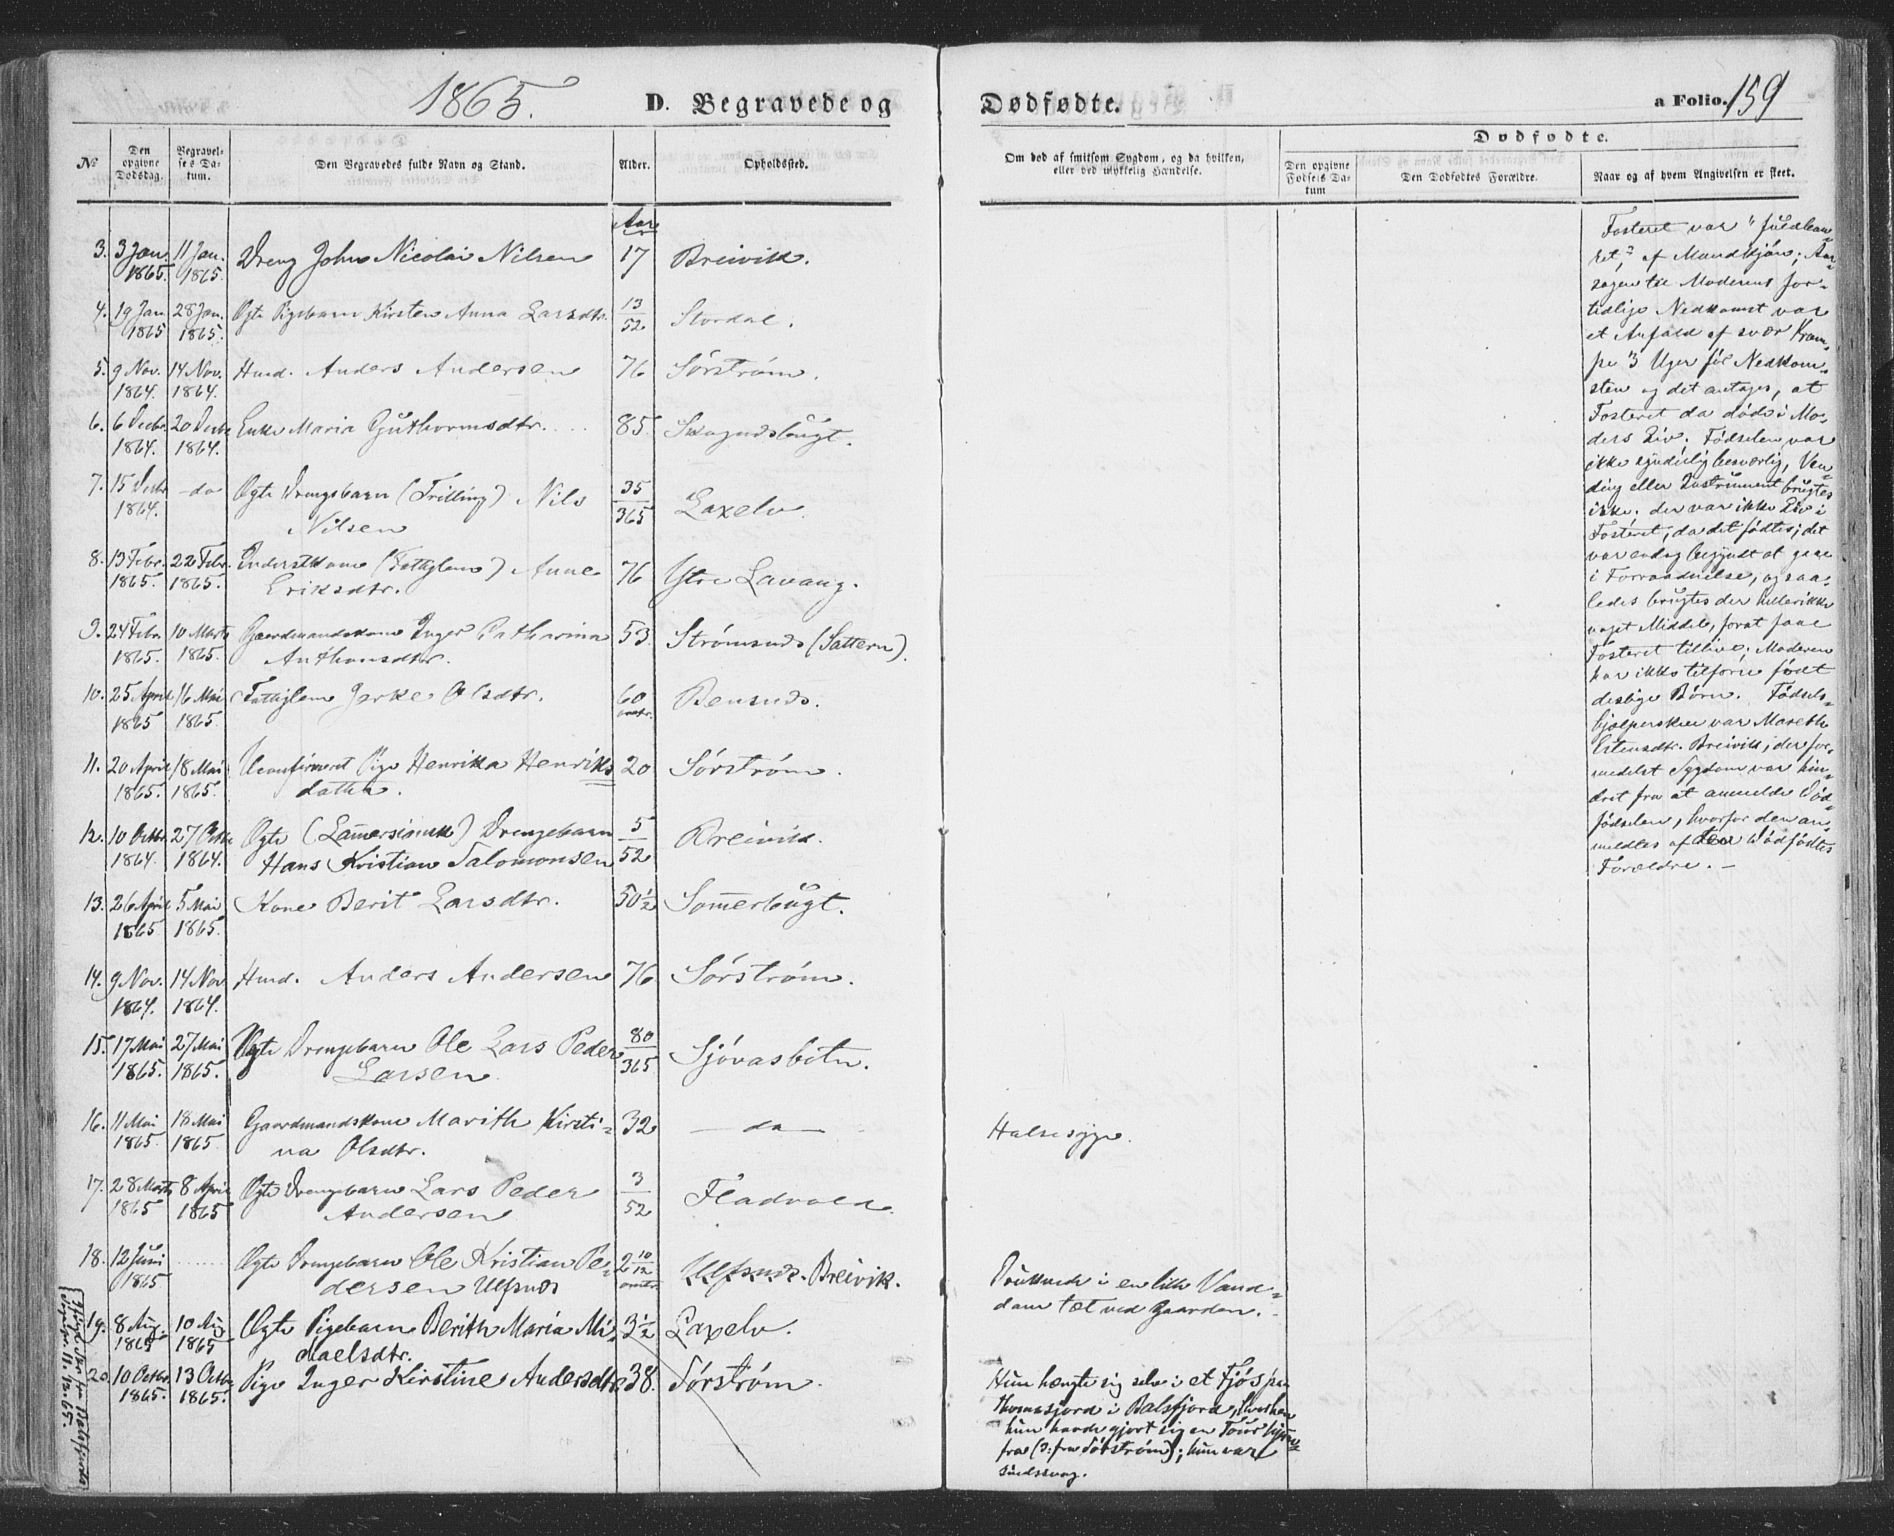 1865.
D. Begravede og
Dødfødte.
a Folio. 159
No
Den opgivne Dødsdag.
Begravelses Datum.
Den Begravedes fulde Navn og Stand.
Alder.
Opholdssted.
Om død af smitsom Sygdom, og da hvilken,
eller ved ulykkelig Hændelse.
Dødfødte.
Den opgivne Fødsels Datum
Den Dødfødtes Forældre.
Naar og af hvem Angivelsen er skeet.
Aar
3. 3 Jan. 1865. 11 Jan. 1865. Dreng John Nicolai Nilsen 17 Breivik.
4. 19 Jan 1865 28 Jan. 1865. Ægte Pigebarn Kirsten Anna Larsdtr. 13/52 Stordal.
5. 9 Nov. 1864. 14 Nov. 1864. Husd. Anders Andersen 76 Sørstrøm.
6. 6 Decbr. 1864. 20 Decbr 1864. Enke Maria Guthormsdtr. 85.
7. 15 Decbr 1864. - do Ægte Drengebarn (Trilling) Nils
Nilsen 35/365 Laxelv.
8. 13 Febr. 1865. 22 Febr. 1865. (Fattiglem) Anne
Eriksdtr. 76 Ytre Lavang.
9. 24 Febr. 1865. 10 Marts 1865. Gaardmandskone Inger Catharina
Anthonsdtr. 53. Strømsnds (Sattern).
10. 25 April 1865 16 Mai 1865. Fattiglem Olsdtr. 60 omtr. Bensnds.
11. 20 April 1865. 18 Mai 1865. Uconfirmeret Pige Henrikka Henriks
datter. 20 Sørstrøm.
12. 10 Octbr. 1864. 27 Octbr 1864. Ægte Drengebarn
Hans Kristian Salomonsen 5/52 Breivik.
13. 26 April 1865 5 Mai 1865. Kone Berit Larsdtr. 50 1/2 Somerbugt.
14. 9 Nov. 1864. 14 Nov 1864. Husd. Anders Andersen 76 Sørstrøm.
15. 17 Mai 1865. 27 Mai 1865. Ægte Drengebarn Ole Lars Peder
Larsen 80/365 Sjövasbotn.
16. 11 Mai 1865. 18 Mai 1865 Gaardmandskone Marith Kirsti-
na Olsdtr. 32 - do - Halsesyge.
17. 28 Marts 1865 8 April 1865 Ægte Drengebarn Lars Peder
Andersen 3/52 Fladvold.
18. 12 Juni 1865 Ægte Drengebarn Ole Kristian Pe-
dersen Ulfsnds 2 10/12 omtr. Ulfsnds. Breivik. Druknede i en lille Vand-
dam tæt ved Gaarden.
19. 8 Aug. 1865 10 Aug 1865 Ægte Pigebarn Berith Maria Mi-
chaelsdtr. 3 1/2 Laxelv.
20. 10 Octbr. 1865. 13 Octbr 1865. Pige Inger Kirstine Andersdtr. 38. Sørstrøm. Hun hængte sig selv i et Fjøs paa
i Balsfjord, hvorhen
hun havde gjort sig en Tour
fra (ɔ: fra Sørstrøm); hun var
sindssvag.
Fosteret var "fuldbaa-
ret," af Mandkjøn; Aar-
sagen til Moderens for-
tidlige Nedkomst var
et Anfald af svær Kram-
pe 3 Uger før Nedkom-
sten og det antages, at
Fosteret da døde i Mo-
ders Liv. Fødselen var
ikke synderlig besværlig, Ven-
ding eller Instrument brugtes
ikke. der var ikke Liv i
Fosteret, da det fødtes; det
var endog begyndt at gaae
i Forraadnelse, og saa-
ledes brugtes der heller ikke
noget Middel, forat faae
Fosteret tillive; Moderen
har ikke tilforn født
deslige Børn. Fødsels-
hjelpersken var Mareth
Estensdtr. Breivik, der for-
medelst Sygdom var hin-
dret fra at anmelde Død-
fødselen, hvorfor den an-
meldtes af den Dødfødtes
Forældre. -